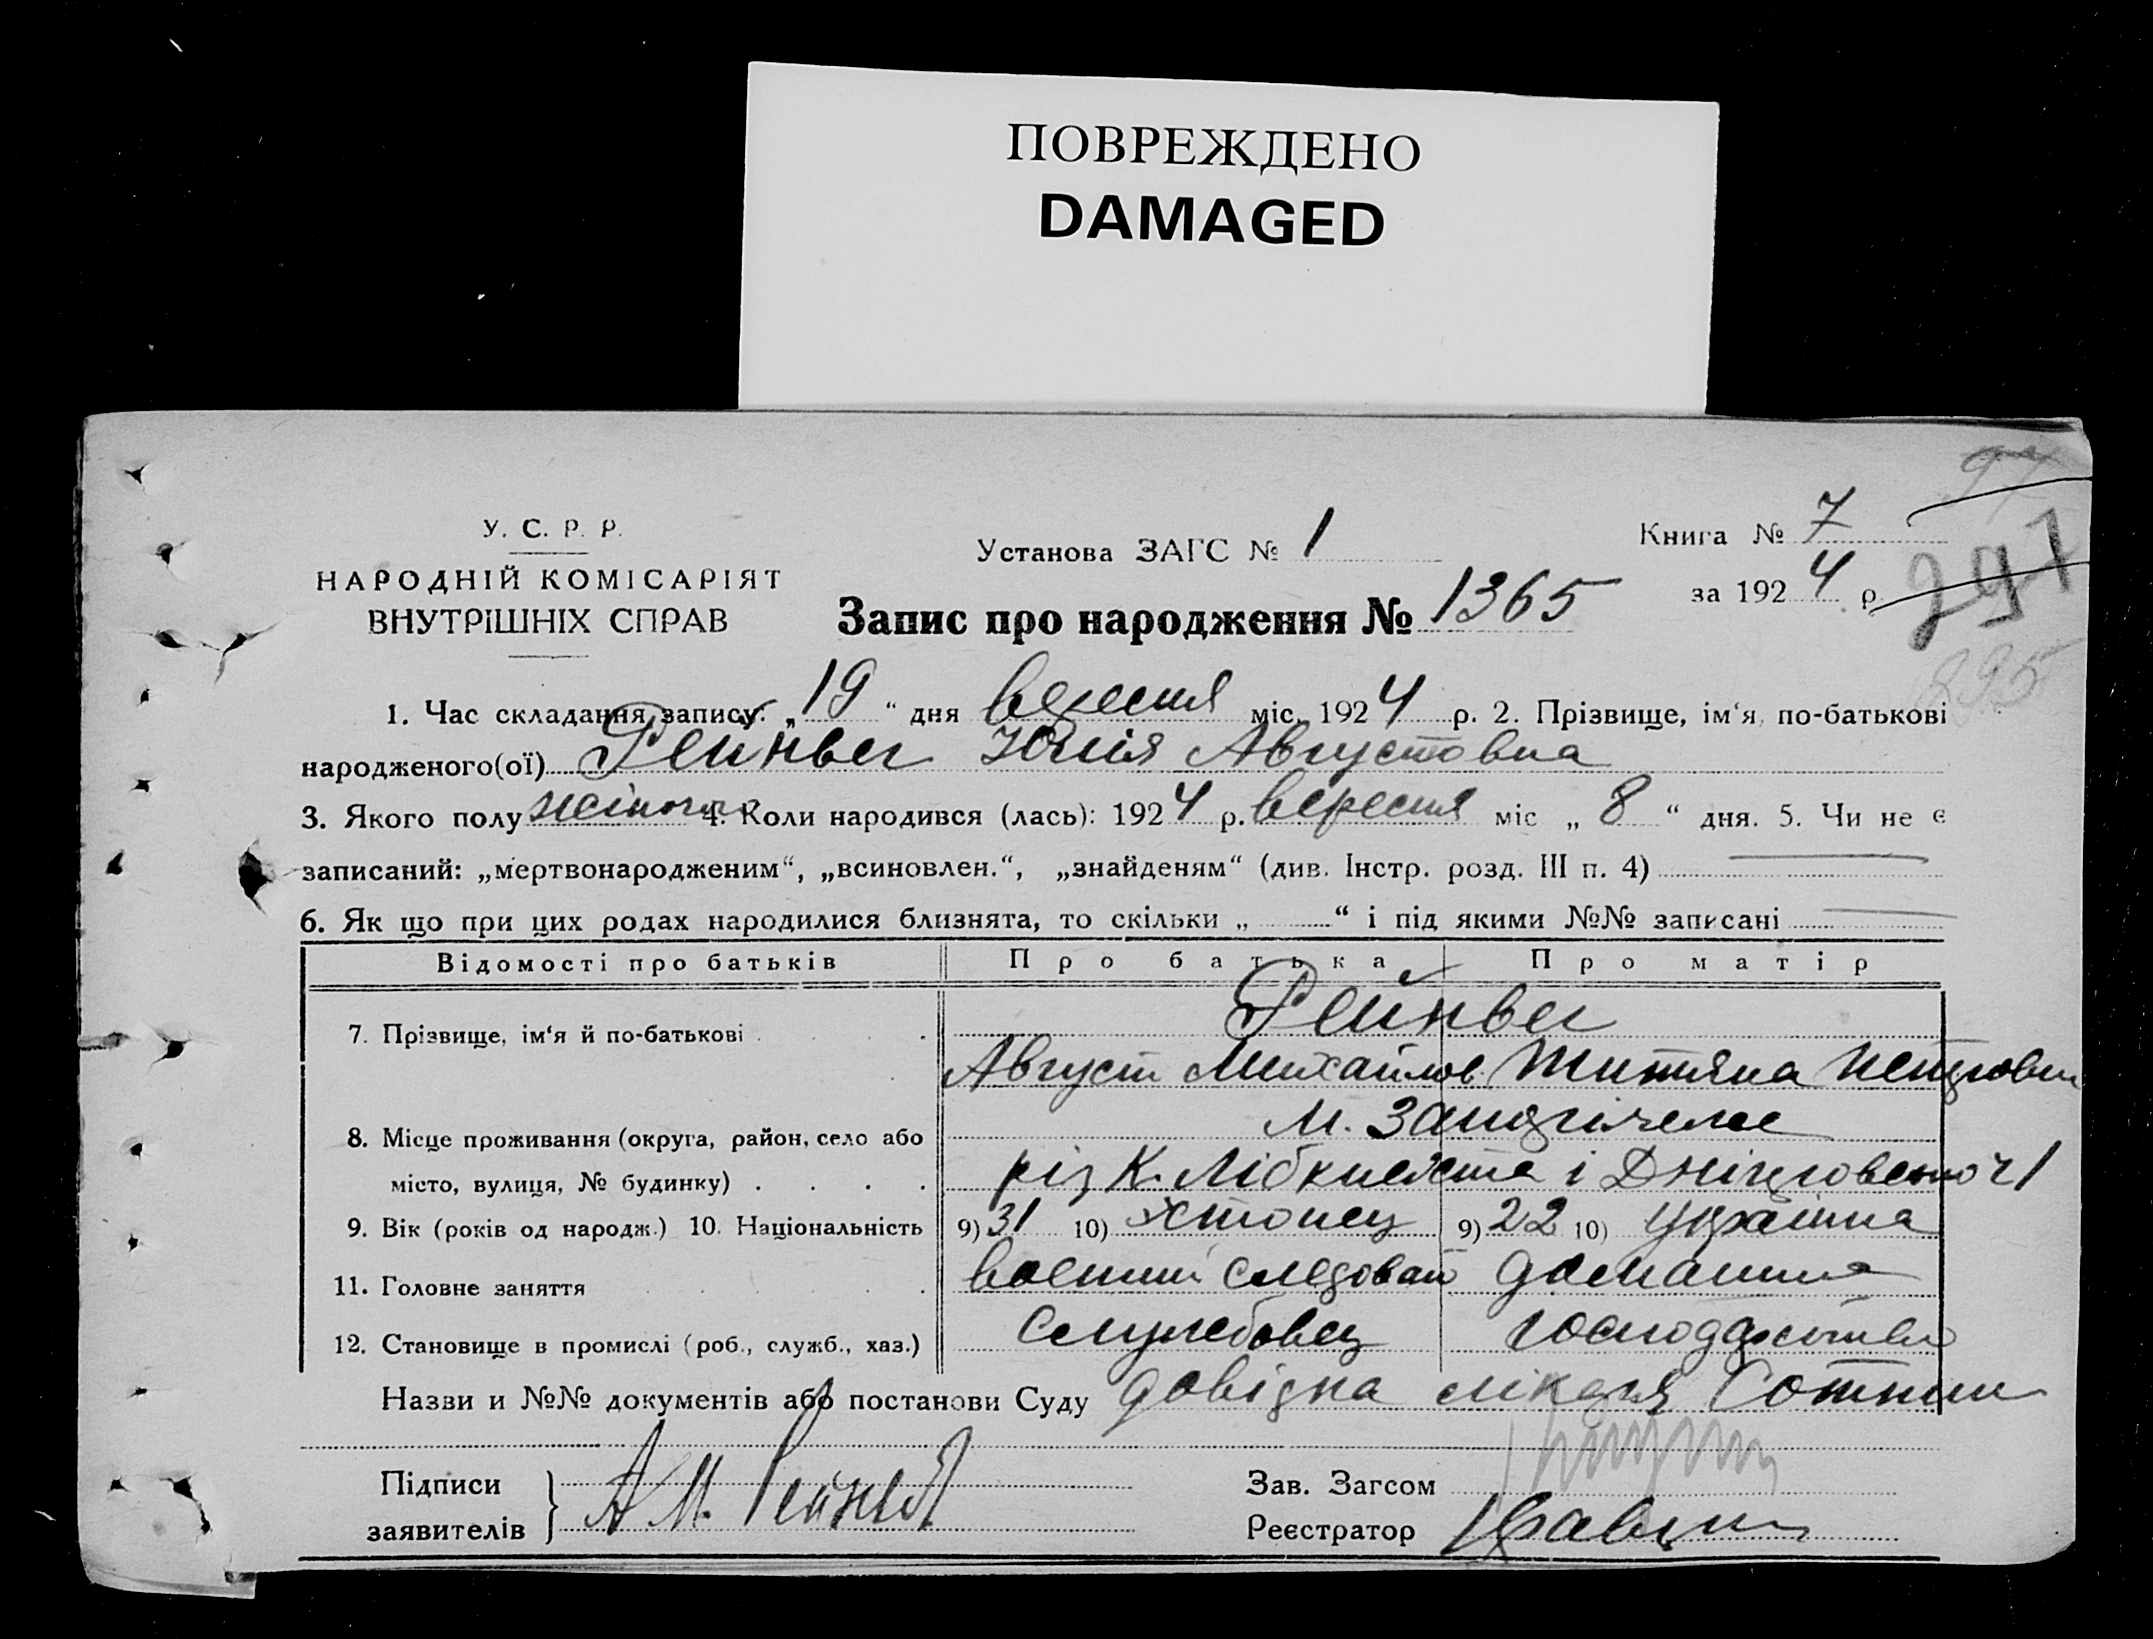 ПОВРЕЖДЕНО
DAMAGED
У. С. Р. Р.
НАРОДНІЙ КОМІСАРІЯТ
ВНУТРІШНІХ СПРАВ
Установа ЗАГС № 1
Книга № 7
за 1924 р.
297
Запис про народження № 1365
1. Час складання запису: „19“ дня вересня міс. 1924 р. 2. Прізвище, ім‘я, по-батькові
народженого(ої) Рейнвег Юлія Августовна
3. Якого полу жіноч. 4. Коли народився (лась): 1924 р. вересня міс „8“ дня. 5. Чи не є
записаний: „мертвонародженим“, „всиновлен.“, „знайденям“ (див. Інстр. розд. III п. 4)
6. Як що при цих родах народилися близнята, то скільки „ “ і під якими №№ записані
Відомості про батьків Про батька Про матір
Рейнвег
7. Прізвище, ім‘я й по-батькові
Август Михайлов Титяна Петровн
М. Запоріжже
8. Місце проживання (округа, район, село або
місто, вулиця, № будинку) ріг К. Лібкнехта і Дніпровської 21
9. Вік (років од народж.) 10. Національність 9) 31 10) Эстонец 9) 22 10) Українка
11. Головне заняття военний следоват домашнє
12. Становище в промислі (роб., служб., хаз.) Службовец господарство
Назви и №№ документів або постанови Суду довідка лікаря
Підписи
заявителів А М. Рейнвег
Зав. Загсом
Реєстратор